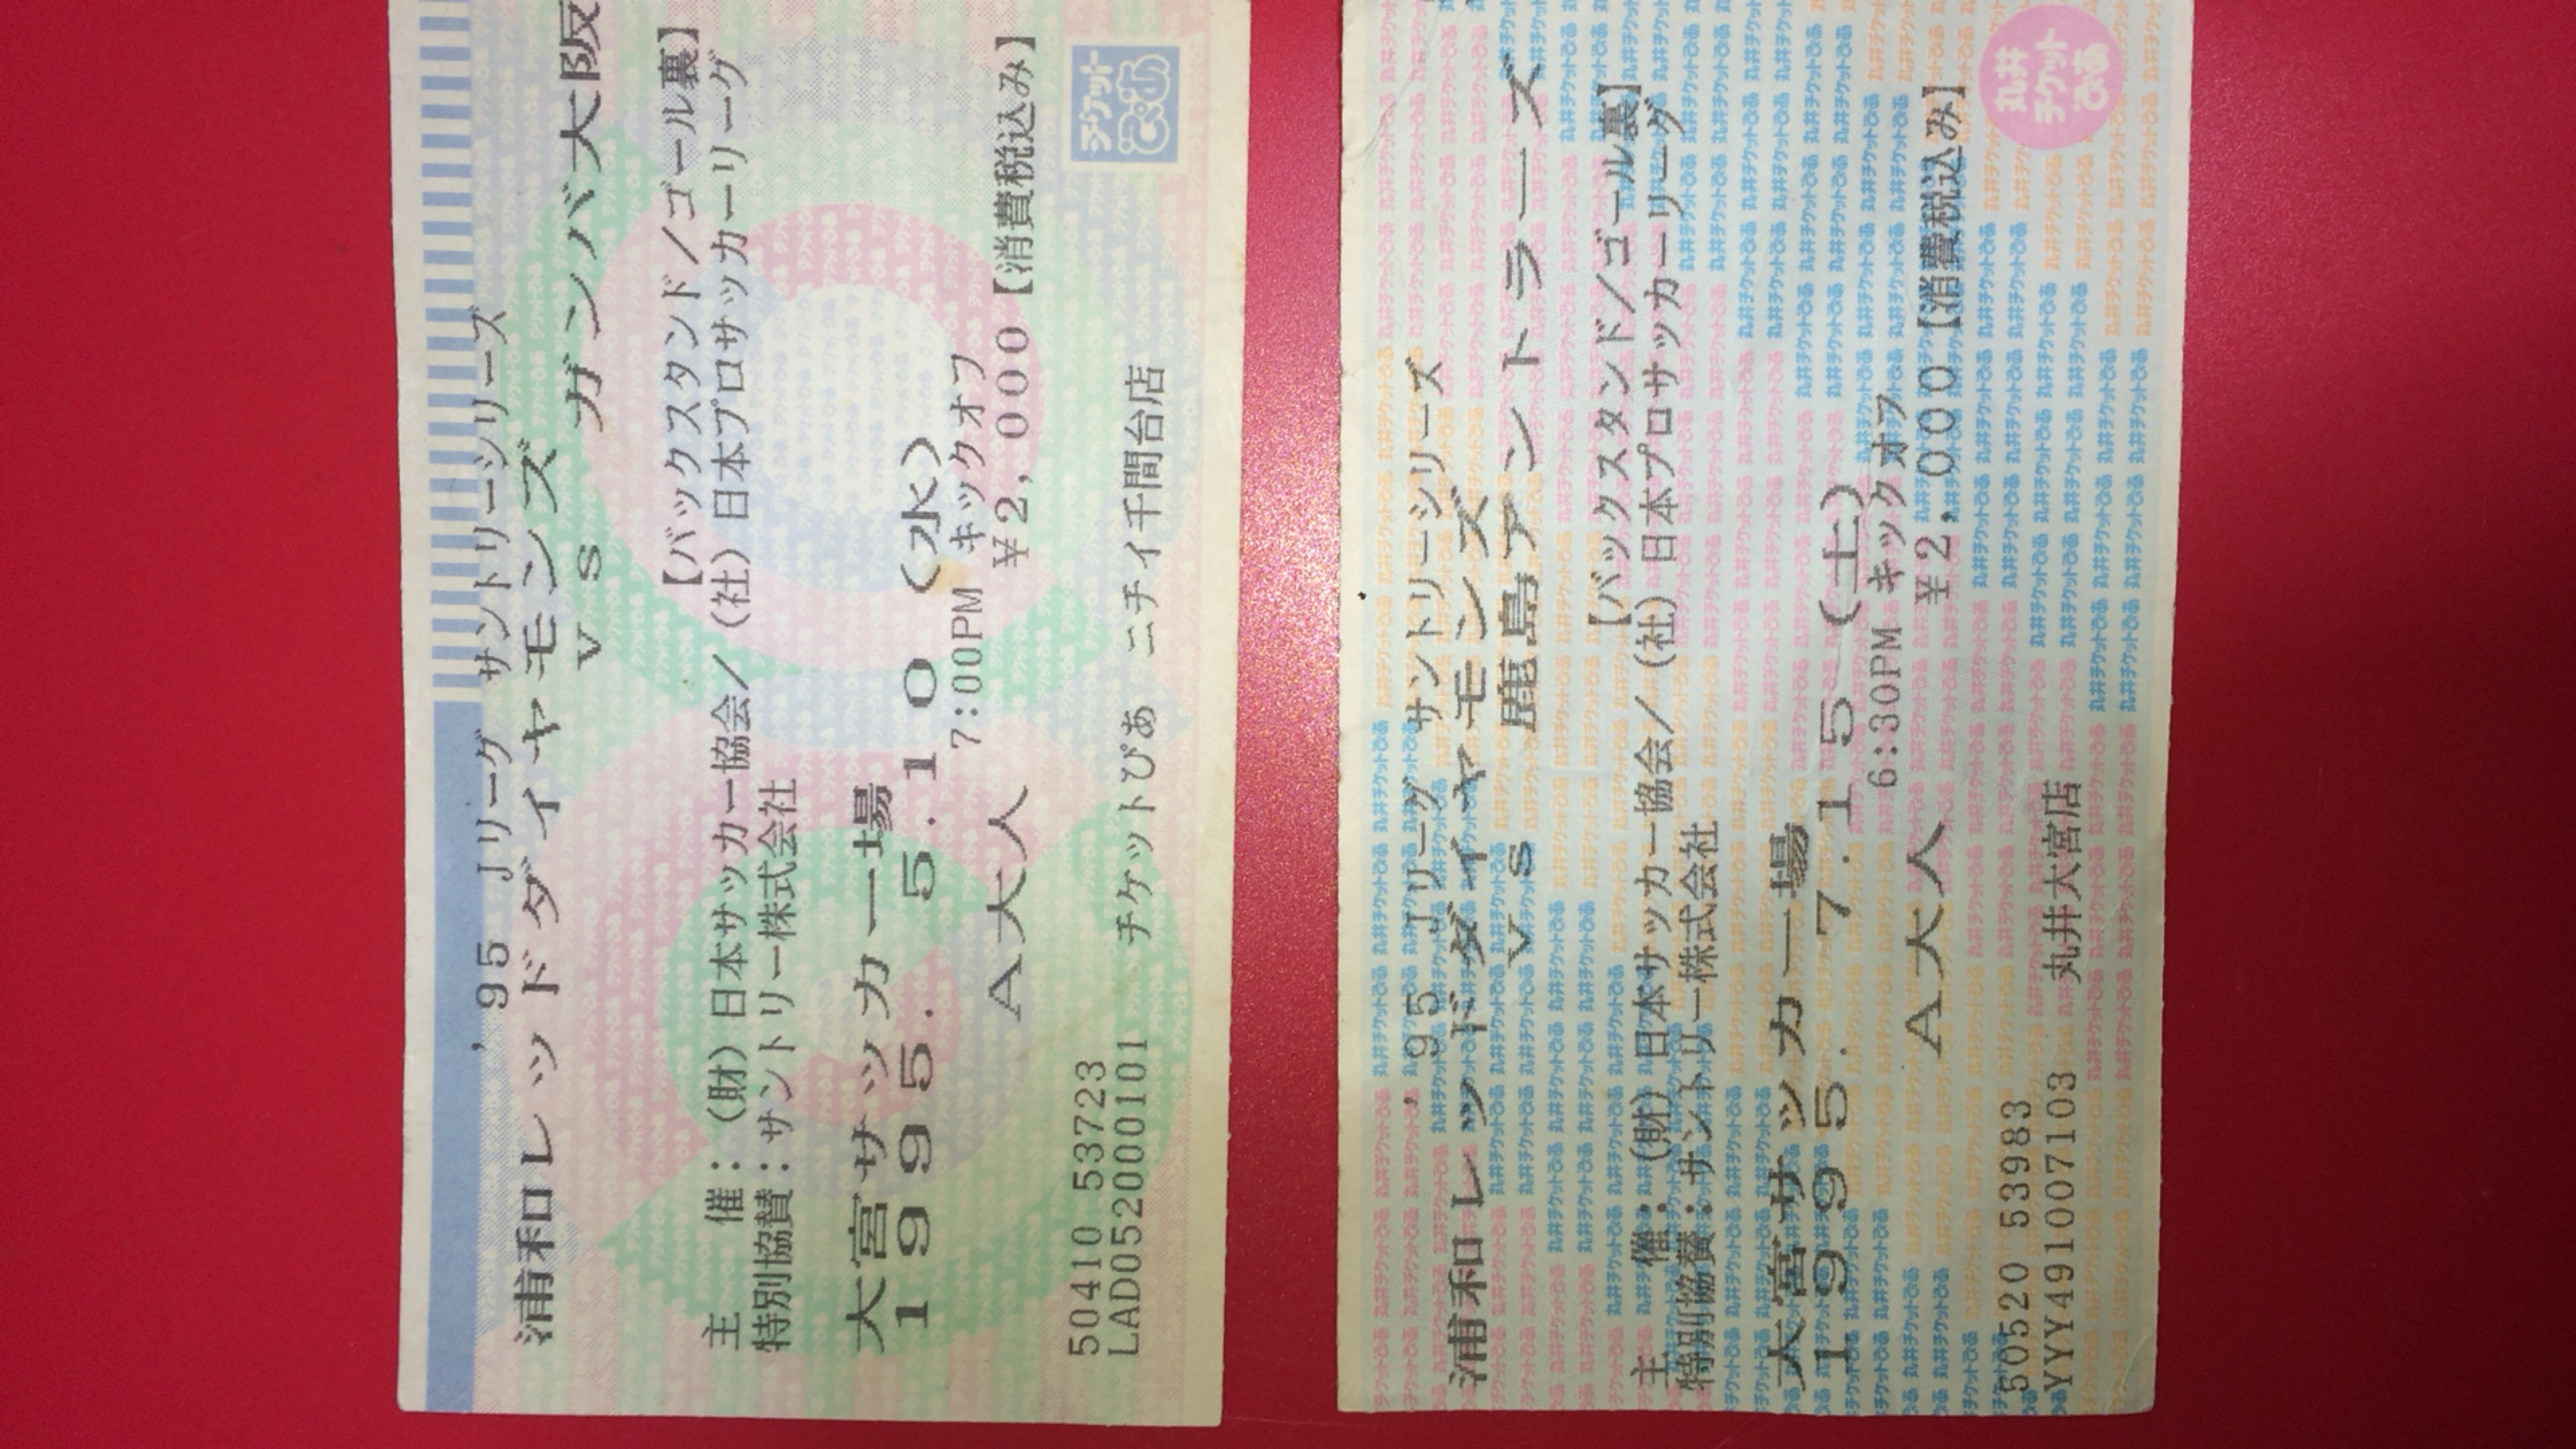 '95 Jリーグ サントリーシリーズ
浦和レッドダイヤモンズ
vs ガンバ大阪
【バックスタンド/ゴール裏】
主 催:(財)日本サッカー協会/(社)日本プロサッカーリーグ
特別協賛:サントリー株式会社
大宮サッカー場
1995. 5.10(水)
7:00PM キックオフ
A大人 ¥2,000【消費税込み】
50410 53723
LAD0520001101 チケットぴあ ニチイ千間台店
チケット
ぴあ
'95 Jリーグ サントリーシリーズ
浦和レッドダイヤモンズ
vs 鹿島アントラーズ
【バックスタンド/ゴール裏】
主 催:(財)日本サッカー協会/(社)日本プロサッカーリーグ
特別協賛:サントリー株式会社
大宮サッカー場
1995. 7.15(土)
6:30PM キックオフ
A大人 ¥2,000【消費税込み】
50520 53983
YYY491007103 丸井大宮店
丸井
チケット
ぴあ